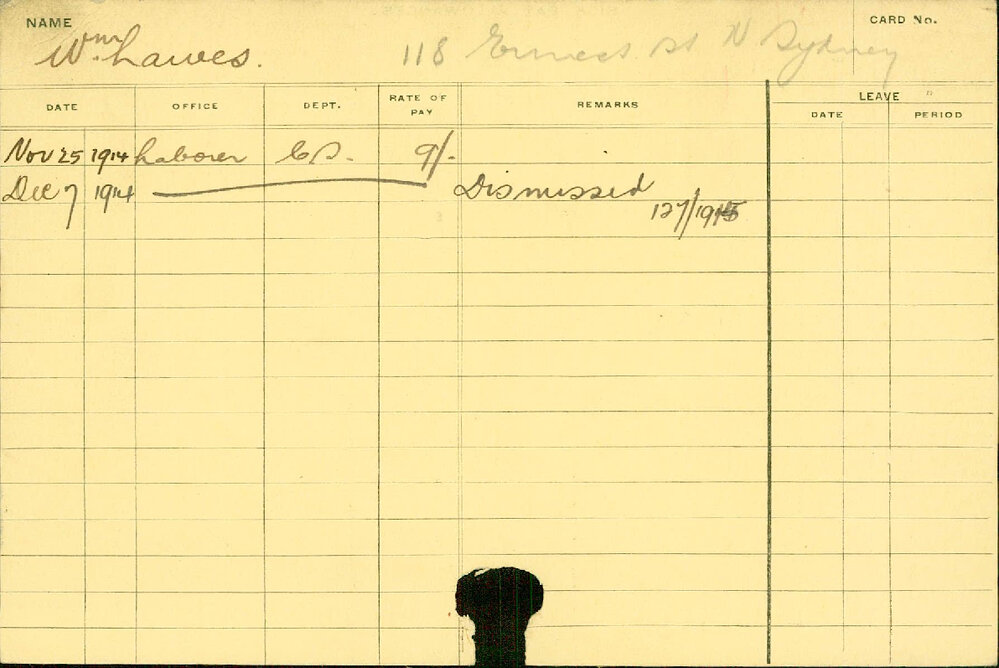 NAME
CARD No.
Wm. Lawes. 118 Ernest St N Sydney
DATE OFFICE DEPT. RATE OF PAY REMARKS LEAVE
DATE PERIOD
Nov 25 1914 Laborer 9/-
Dec 7 1914 Dismissed
127/1915